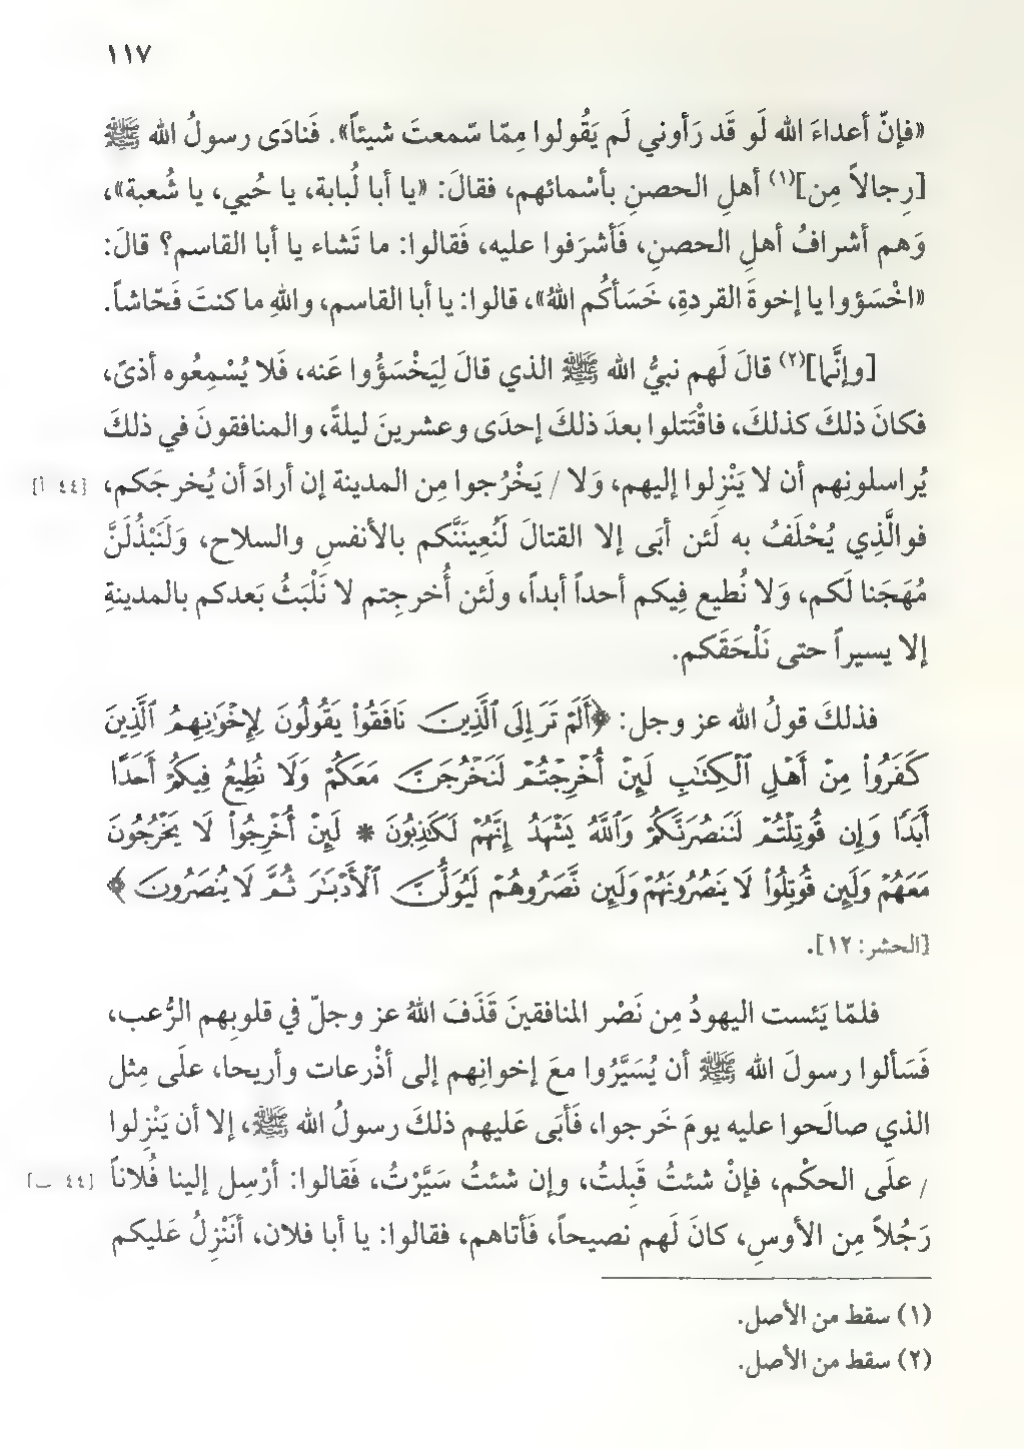 ١١٧
«فإنّ أعداءَ الله لَو قَد رَأوني لَم يَقُولوا مِمّا سّمعتَ شيئاً». فَنادَى رسولُ الله ﷺ
[رِجالاً مِن](١) أهلِ الحصنِ بأسْمائهم، فقالَ: «يا أبا لُبابة، يا حُيي، يا شُعبة»،
وَهم أشرافُ أهلِ الحصنِ، فَأشرَفوا عليه، فَقالوا: ما تَشاء يا أبا القاسم؟ قالَ:
«اخْسَؤوا يا إخوةَ القردةِ، خَسَأكُم اللهُ»، قالوا: يا أبا القاسم، واللهِ ما كنتَ فَحّاشاً.
[وإنَّما](٢) قالَ لَهم نبيُّ الله ﷺ الذي قالَ لِيَخْسَؤُوا عَنه، فَلا يُسْمِعُوه أذىً،
فكانَ ذلكَ كذلكَ، فاقْتَتلوا بعدَ ذلكَ إحدَى وعشرينَ ليلةً، والمنافقونَ في ذلكَ
يُراسلونِهم أن لا يَنْزِلوا إليهم، وَلا / يَخْرُجوا مِن المدينة إن أرادَ أن يُخرجَكم، [٤٤ أ]
فوالَّذِي يُحْلَفُ به لَئن أبَى إلا القتالَ لَنُعِينَنَّكم بالأنفسِ والسلاح، وَلَنَبْذُلَنَّ
مُهَجَنا لَكم، وَلا نُطيع فِيكم أحداً أبداً، ولَئن أُخرجتم لا نَلْبَثُ بَعدكم بالمدينةِ
إلا يسيراً حتى نَلْحَقَكم.
فذلكَ قولُ الله عز وجل: ﴿أَلَمْ تَرَ إِلَى ٱلَّذِينَ نَافَقُوا۟ يَقُولُونَ لِإِخْوَٰنِهِمُ ٱلَّذِينَ
كَفَرُوا۟ مِنْ أَهْلِ ٱلْكِتَٰبِ لَئِنْ أُخْرِجْتُمْ لَنَخْرُجَنَّ مَعَكُمْ وَلَا نُطِيعُ فِيكُمْ أَحَدًا
أَبَدًا وَإِن قُوتِلْتُمْ لَنَنصُرَنَّكُمْ وَٱللَّهُ يَشْهَدُ إِنَّهُمْ لَكَٰذِبُونَ * لَئِنْ أُخْرِجُوا۟ لَا يَخْرُجُونَ
مَعَهُمْ وَلَئِن قُوتِلُوا۟ لَا يَنصُرُونَهُمْ وَلَئِن نَّصَرُوهُمْ لَيُوَلُّنَّ ٱلْأَدْبَٰرَ ثُمَّ لَا يُنصَرُونَ﴾
[الحشر: ١٢].
فلمّا يَئست اليهودُ مِن نَصْر المنافقينَ قَذَفَ اللهُ عز وجلّ في قلوبِهم الرُّعب،
فَسَألوا رسولَ الله ﷺ أن يُسَيَّرُوا معَ إخوانِهم إلى أذْرعات وأريحا، علَى مِثل
الذي صالَحوا عليه يومَ خَرجوا، فَأبَى عَليهم ذلكَ رسولُ الله ﷺ، إلا أن يَنْزِلوا
/ علَى الحكْم، فإنْ شئتُ قَبِلتُ، وإن شئتُ سَيَّرْتُ، فَقالوا: أرْسِل إلينا فُلاناً [٤٤ ب]
رَجُلاً مِن الأوسِ، كانَ لَهم نصيحاً، فَأتاهم، فقالوا: يا أبا فلان، أنَنْزِلُ عَليكم
(١) سقط من الأصل.
(٢) سقط من الأصل.